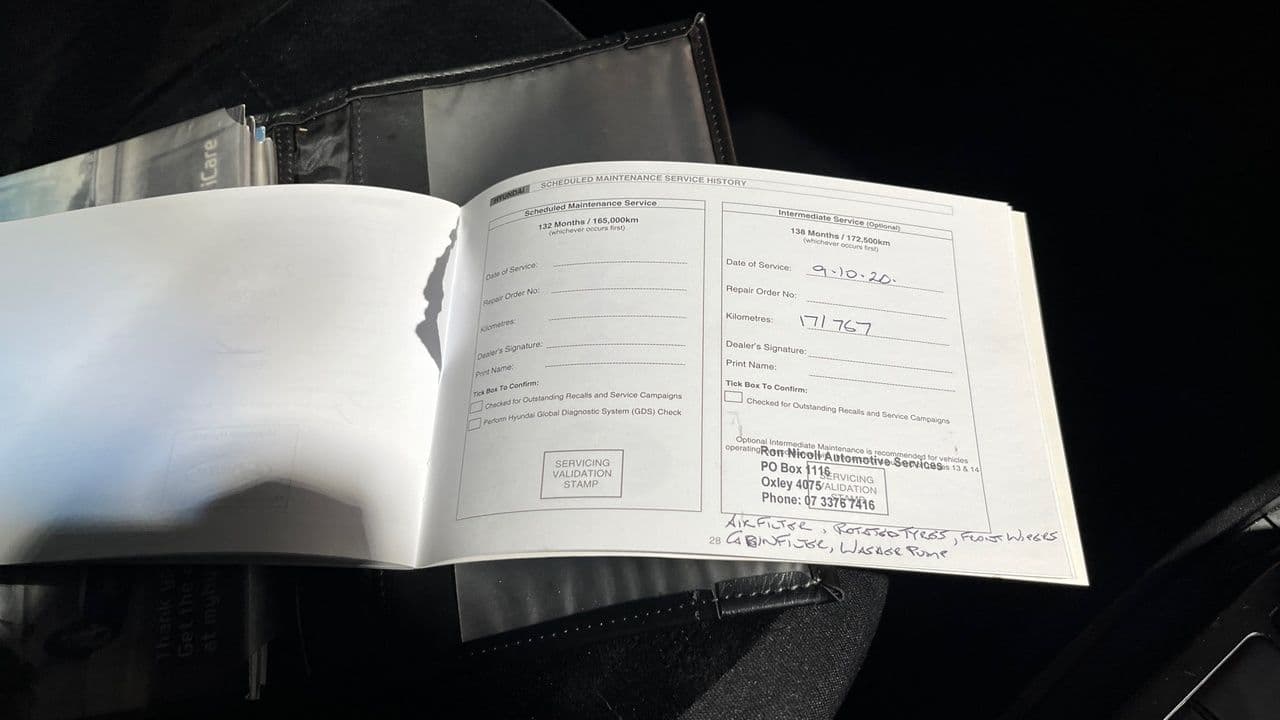 iCare
HYUNDAI SCHEDULED MAINTENANCE SERVICE HISTORY
Scheduled Maintenance Service
132 Months / 165,000km
(whichever occurs first)
Date of Service:
Repair Order No:
Kilometres:
Dealer's Signature:
Print Name:
Tick Box To Confirm:
Checked for Outstanding Recalls and Service Campaigns
Perform Hyundai Global Diagnostic System (GDS) Check
SERVICING
VALIDATION
STAMP
Intermediate Service (Optional)
138 Months / 172,500km
(whichever occurs first)
Date of Service: 9.10.20.
Repair Order No:
Kilometres: 171767
Dealer's Signature:
Print Name:
Tick Box To Confirm:
Checked for Outstanding Recalls and Service Campaigns
Optional Intermediate Maintenance is recommended for vehicles
operating 13 & 14
Ron Nicoll Automotive Services
PO Box 1116
Oxley 4075
Phone: 07 3376 7416
SERVICING
VALIDATION
STAMP
AIR FILTER, ROTATED TYRES, FRONT WIPERS
28 CABIN FILTER, WASHER PUMP
Get the
at my